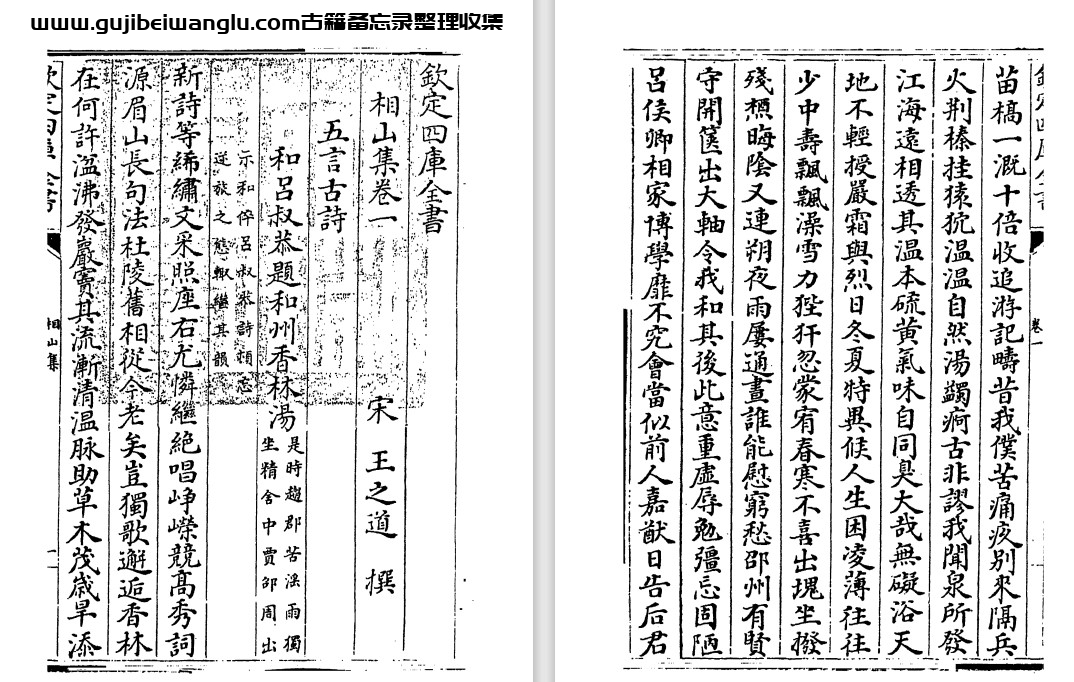 www.gujibeiwanglu.com古籍备忘录整理收集
欽定四庫全書
相山集卷一 宋 王之道 撰
五言古詩
和呂叔恭題和州香林湯
是時趙郡苦淫雨獨
坐精舍中賈卲周出
示和倅呂叔恭詩頓忘
逆旅之愁輙繼其韻
新詩等絺繡文采照座右尤憐繼絶唱崢嶸競髙秀詞
源眉山長句法杜陵舊相從今老矣豈獨歌邂逅香林
在何許湓沸發巖竇其流漸清温脉助草木茂歳旱添
欽定四庫全書
相山集
一
欽定四庫全書
卷一
苗槁一溉十倍收追游記疇昔我僕苦痛疚别來隔兵
火荆榛挂猿狖温温自然湯蠲痾古非謬我聞泉所發
江海遠相透其温本硫黄氣味自同臭大哉無礙浴天
地不輕授嚴霜與烈日冬夏特異候人生困凌薄往往
少中壽飄飄澡雪力狴犴忽蒙宥春寒不喜出塊坐撥
殘槱晦陰又連朔夜雨屢通晝誰能慰窮愁邵州有賢
守開篋出大軸令我和其後此意重虛辱勉彊忘固陋
呂侯卿相家博學靡不究會當似前人嘉猷日告后君